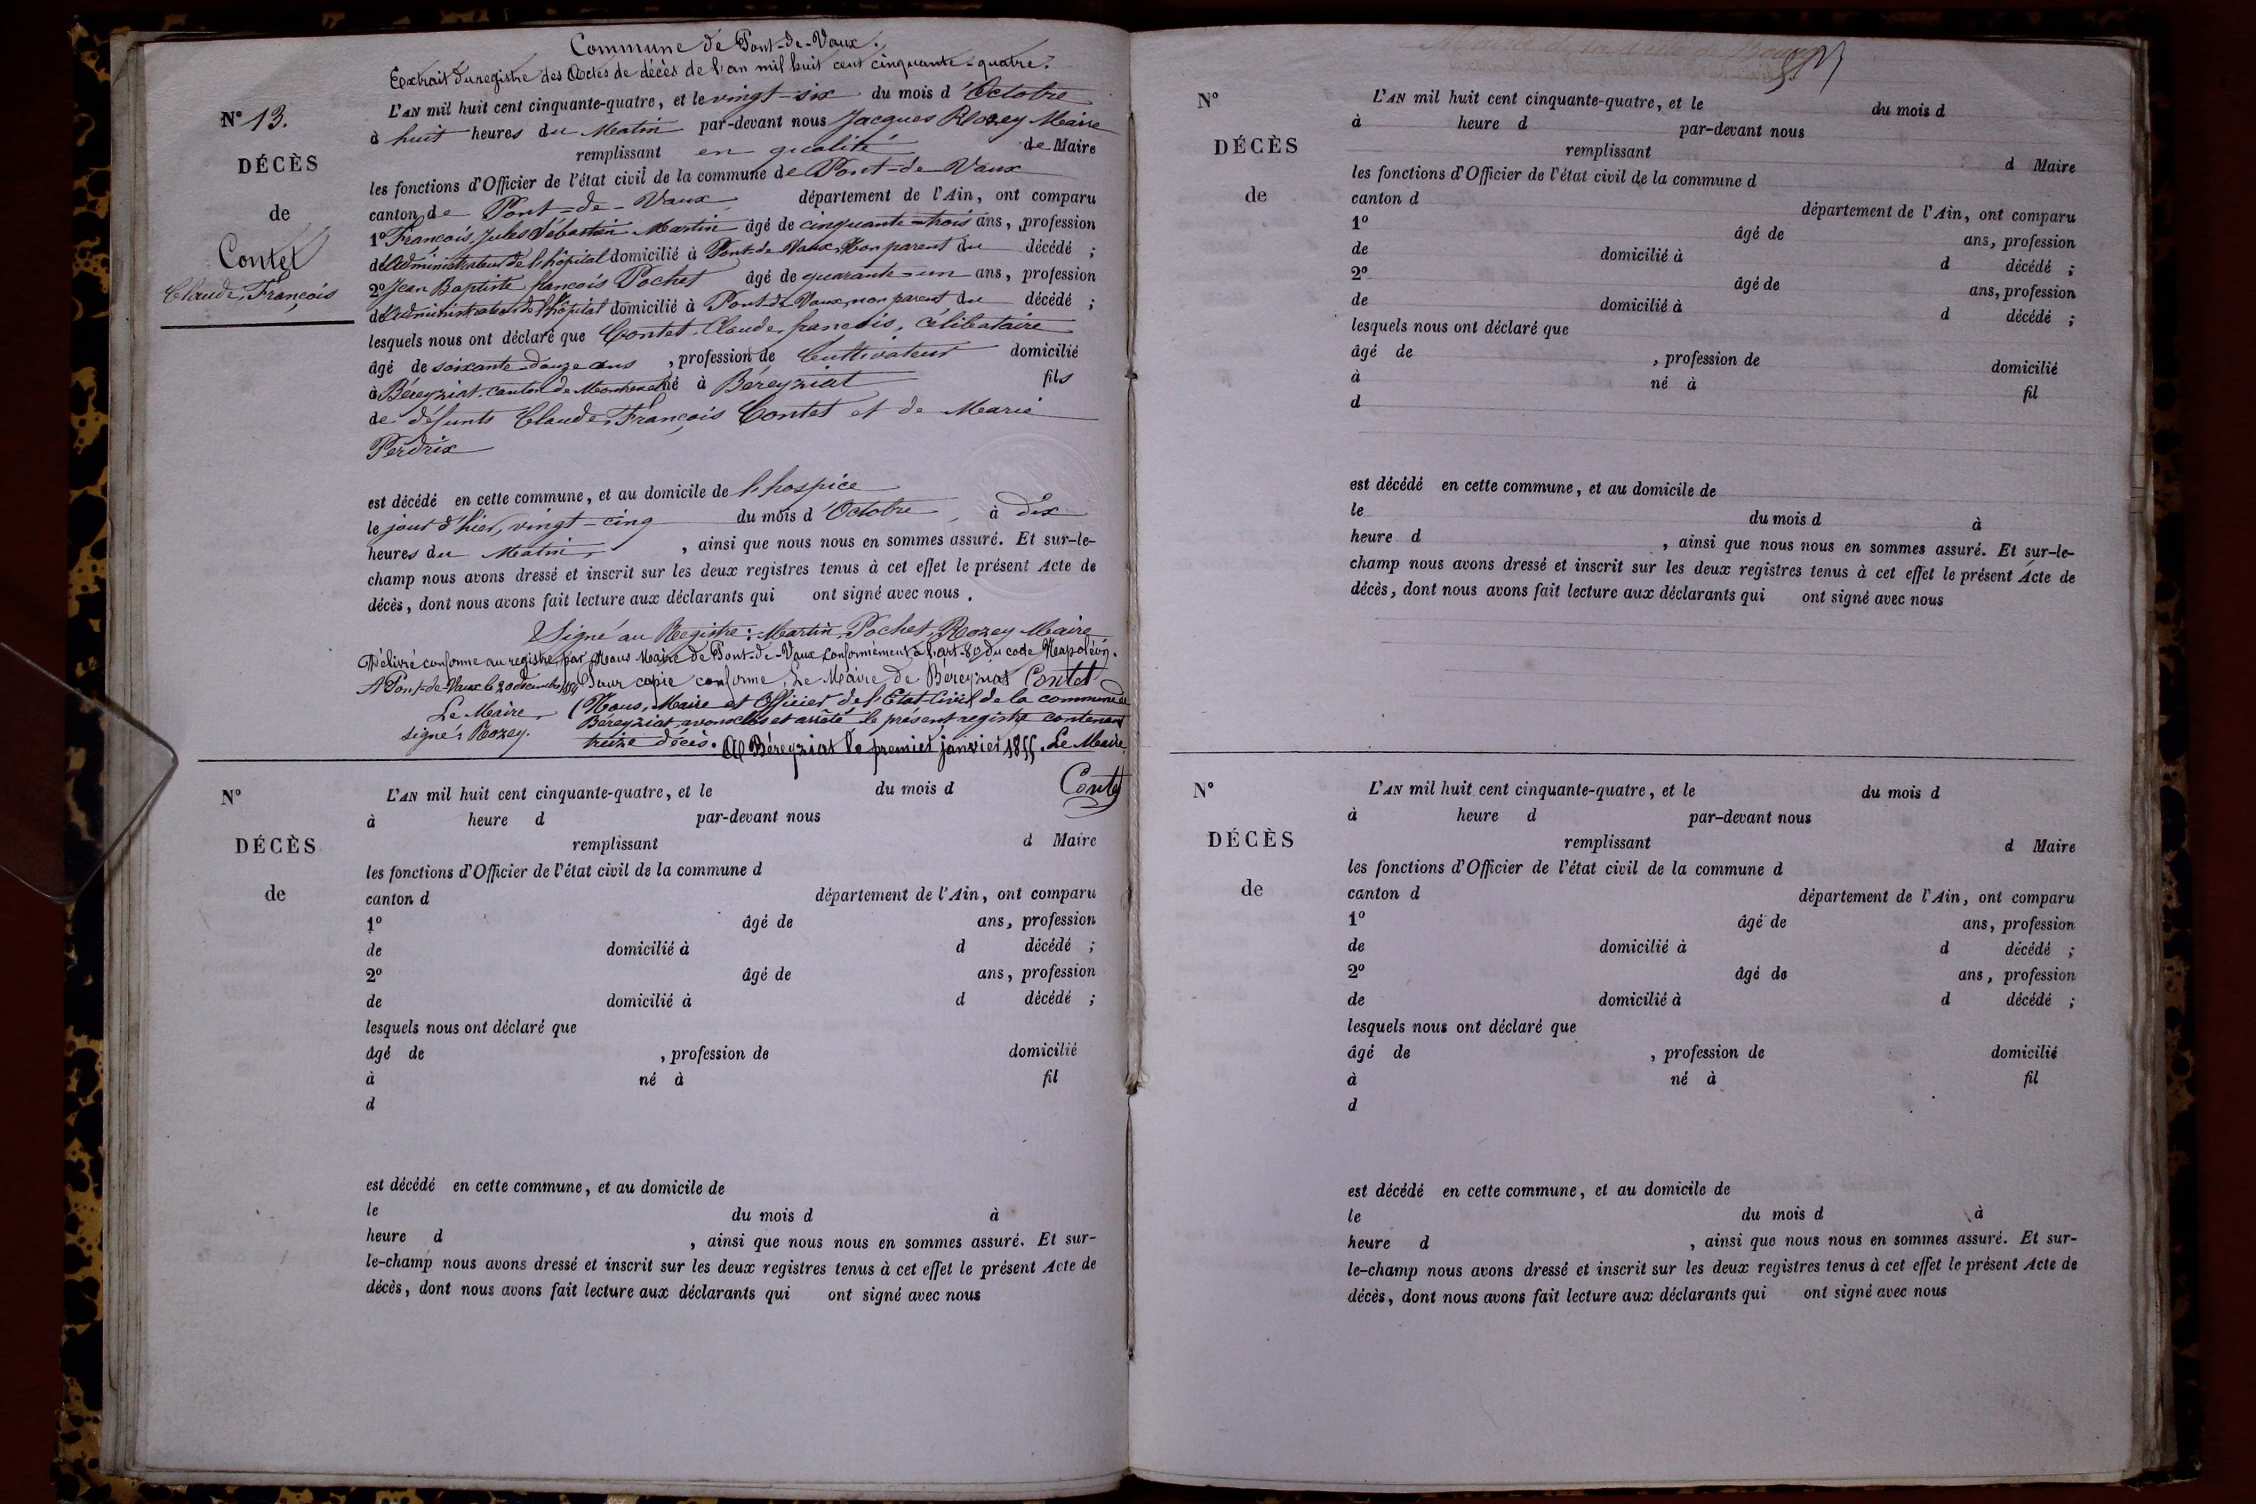 Commune de Pont-de-Vaux.
Extrait du registre des Actes de décès de l'an mil huit cent cinquante-quatre.
N° 13.
DÉCÈS
de
Contet
Claude, François
L'AN mil huit cent cinquante-quatre, et le vingt-six du mois d'Octobre
à huit heures du Matin par-devant nous Jacques Rozey Maire
remplissant en qualité de Maire
les fonctions d'Officier de l'état civil de la commune de Pont-de-Vaux
canton de Pont-de-Vaux département de l'Ain, ont comparu
1° François, Jules Sébastien Martin âgé de cinquante-trois ans, profession
d'Administrateur de l'hôpital domicilié à Pont-de-Vaux, non parent du décédé ;
2° Jean Baptiste françois Pochet âgé de quarante-un ans, profession
d'Administrateur de l'hôpital domicilié à Pont-de-Vaux, non parent du décédé ;
lesquels nous ont déclaré que Contet, Claude, francois, célibataire
âgé de soixante-douze ans , profession de Cultivateur domicilié
à Béreyziat, canton de né à Béreyziat fils
de défunts Claude, François Contet et de Marie
Perdrix
est décédé en cette commune, et au domicile de l'hospice
le jour d'hier, vingt-cinq du mois d'Octobre, à dix
heures du Matin, , ainsi que nous nous en sommes assuré. Et sur-le-
champ nous avons dressé et inscrit sur les deux registres tenus à cet effet le présent Acte de
décès, dont nous avons fait lecture aux déclarants qui ont signé avec nous.
Signé au Registre : Martin, Pochet, Rozey Maire
Délivré conforme au registre, par Nous Maire de Pont-de-Vaux conformément à l'art. 80 du code Napoléon.
A Pont-de-Vaux le 20 décembre 1854 Pour copie conforme, Le Maire de Béreyziat Contet
Le Maire, (Nous, Maire et Officier de l'Etat Civil de la commune de
signé : Rozey. Béreyziat, avons clos et arrêté le présent registre contenant
treize décès. A Béreyziat le premier janvier 1855. Le Maire
Contet
N°
DÉCÈS
de
L'AN mil huit cent cinquante-quatre, et le du mois d
à heure d par-devant nous
remplissant d Maire
les fonctions d'Officier de l'état civil de la commune d
canton d département de l'Ain, ont comparu
1° âgé de ans, profession
de domicilié à d décédé ;
2° âgé de ans, profession
de domicilié à d décédé ;
lesquels nous ont déclaré que
âgé de , profession de domicilié
à né à fil
d
est décédé en cette commune, et au domicile de
le du mois d à
heure d , ainsi que nous nous en sommes assuré. Et sur-
le-champ nous avons dressé et inscrit sur les deux registres tenus à cet effet le présent Acte de
décès, dont nous avons fait lecture aux déclarants qui ont signé avec nous
N°
DÉCÈS
de
L'AN mil huit cent cinquante-quatre, et le du mois d
à heure d par-devant nous
remplissant d Maire
les fonctions d'Officier de l'état civil de la commune d
canton d département de l'Ain, ont comparu
1° âgé de ans, profession
de domicilié à d décédé ;
2° âgé de ans, profession
de domicilié à d décédé ;
lesquels nous ont déclaré que
âgé de , profession de domicilié
à né à fil
d
est décédé en cette commune, et au domicile de
le du mois d à
heure d , ainsi que nous nous en sommes assuré. Et sur-le-
champ nous avons dressé et inscrit sur les deux registres tenus à cet effet le présent Acte de
décès, dont nous avons fait lecture aux déclarants qui ont signé avec nous
N°
DÉCÈS
de
L'AN mil huit cent cinquante-quatre, et le du mois d
à heure d par-devant nous
remplissant d Maire
les fonctions d'Officier de l'état civil de la commune d
canton d département de l'Ain, ont comparu
1° âgé de ans, profession
de domicilié à d décédé ;
2° âgé de ans, profession
de domicilié à d décédé ;
lesquels nous ont déclaré que
âgé de , profession de domicilié
à né à fil
d
est décédé en cette commune, et au domicile de
le du mois d à
heure d , ainsi que nous nous en sommes assuré. Et sur-
le-champ nous avons dressé et inscrit sur les deux registres tenus à cet effet le présent Acte de
décès, dont nous avons fait lecture aux déclarants qui ont signé avec nous